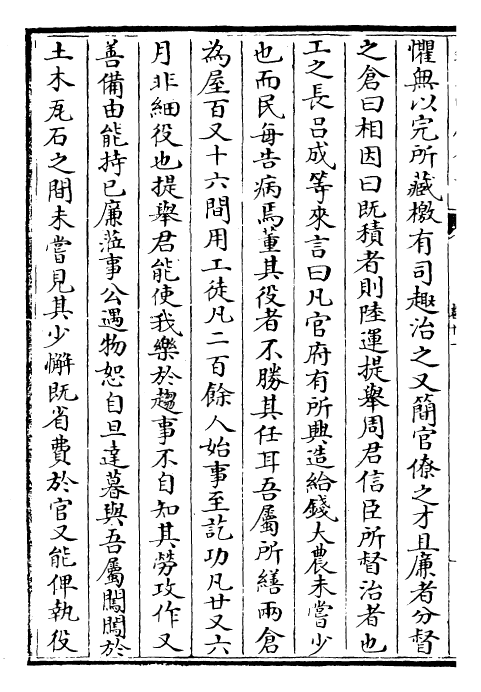 懼無以完所藏檄有司趣治之又簡官僚之才且廉者分督
之倉曰相因曰既積者則陸運提舉周君信臣所督治者也
工之長呂成等來言曰凡官府有所興造給錢大農未嘗少
也而民每告病焉董其役者不勝其任耳吾屬所繕兩倉
為屋百又十六間用工徒凡二百餘人始事至訖功凡廿又六
月非細役也提舉君能使我樂於趨事不自知其勞攻作又
善備由能持已廉涖事公遇物恕自旦達暮與吾屬闖闖於
土木瓦石之間未嘗見其少懈既省費於官又能俾執役